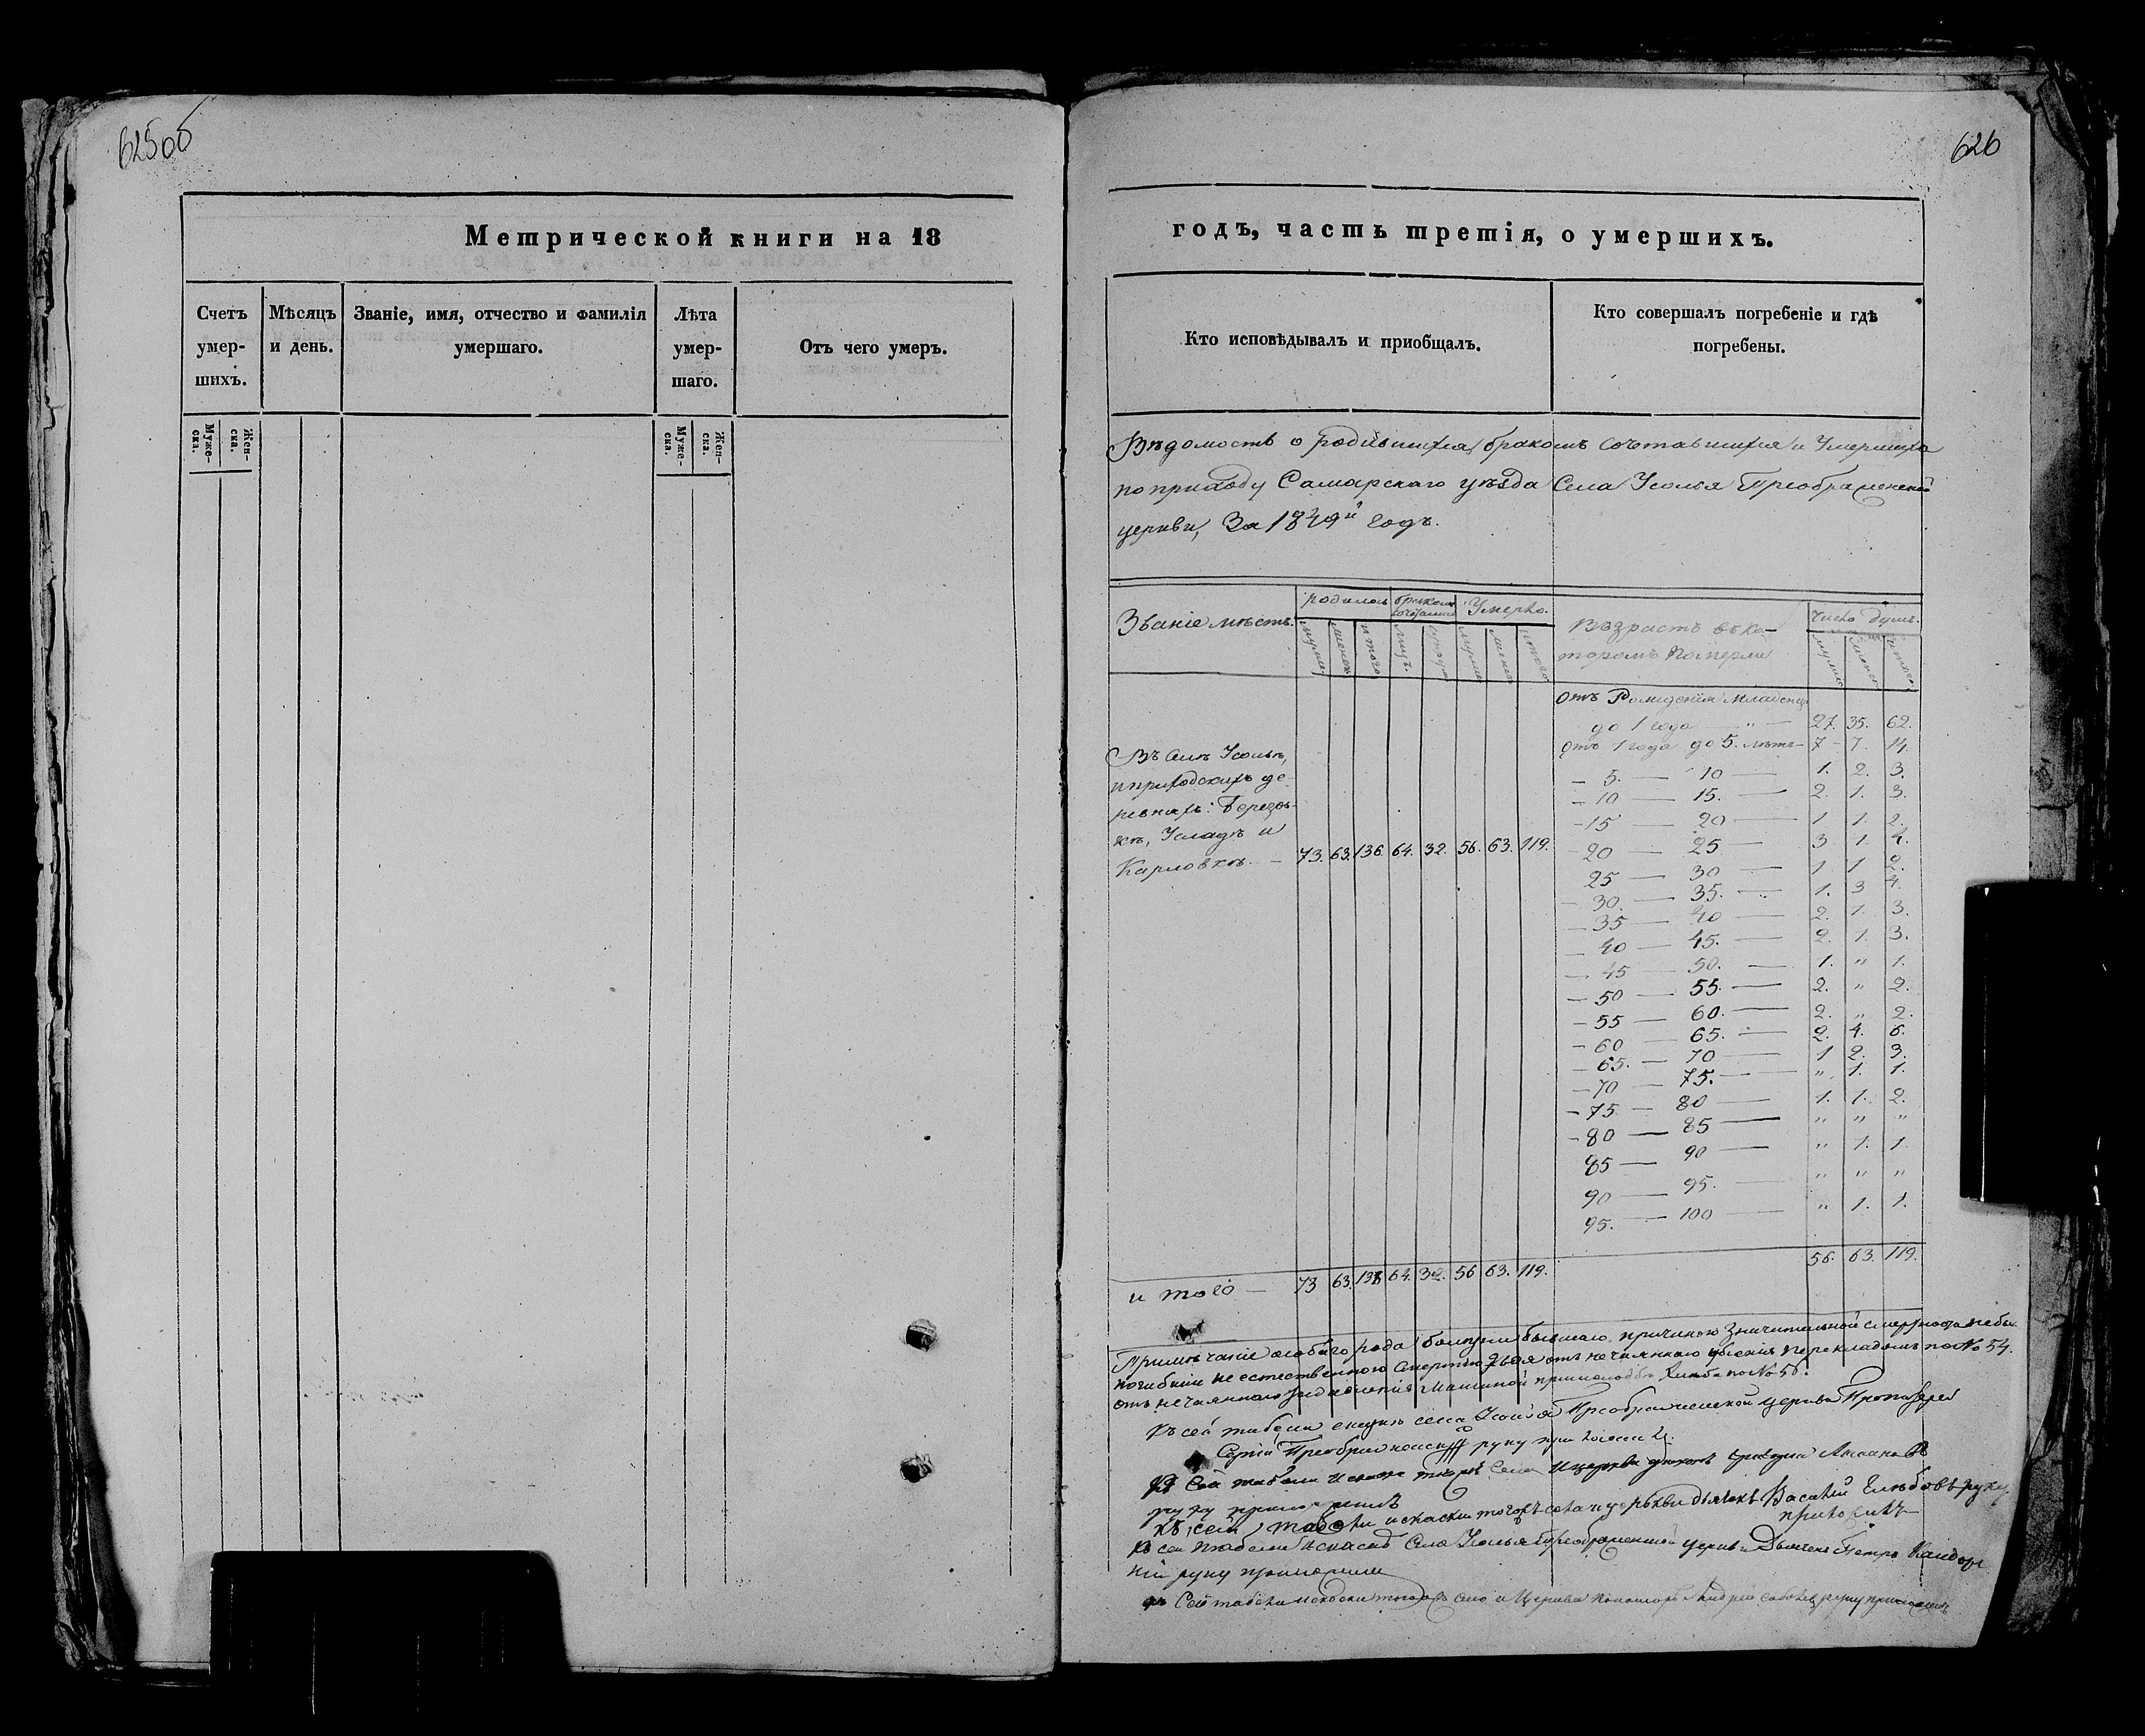 625об
Метрической книги на 18
Счетъ умер-шихъ.
Мѣсяцъ и день.
Званіе, имя, отчество и фамилія умершаго.
Лѣта умер-шаго.
Отъ чего умеръ.
Муже-ска.
Жен-ска.
Муже-ска.
Жен-ска.
626
годъ, часть третія, о умершихъ.
Кто исповѣдывалъ и приобщалъ.
Кто совершалъ погребеніе и гдѣ погребены.
Вѣдомость о родившихся, бракомъ сочетавшихся и Умершихъ
по приходу Самарскаго уѣзда Села Усолья Преображенской
церкви, За 1849й годъ.
Званіе мѣстъ.
родилось
бракомъ
Умерло.
Возрастъ въ ко-
торомъ Померли
Число душъ.
мужеска женска итого
отъ Рожденія младенца
до 1 года — " — 27. 35. 62.
отъ 1 года до 5. лѣтъ — 7 - 7. 14.
— 5. — 10 — 1. 2. 3.
— 10 — 15. — 2. 1. 3.
— 15 — 20 — 1 1. 2.
— 20 — 25 — 3 1. 4.
25 — 30 — 1 1 2.
— 30. — 35. — 1. 3 4.
— 35 — 40 — 2. 1. 3.
— 40 — 45. — 2. 1. 3.
— 45 — 50. — 1. " 1.
— 50 — 55. — 2. " 2.
— 55 — 60. — 2. " 2.
— 60 — 65. — 2. 4. 6.
— 65. — 70 — 1 2. 3.
— 70 — 75. — " 1. 1.
— 75 — 80 — 1. 1. 2.
— 80 — 85 — " " "
85 — 90 — " 1. 1.
90 — 95. — " " "
95. — 100 — " 1. 1.
56. 63. 119.
Въ селѣ Усольѣ,
и приходскихъ де-
ревняхъ: Березов-
кѣ, Усладѣ и
Карловкѣ. — 73. 63. 136. 64. 32. 56. 63. 119.
и того — 73 63. 136 64. 32. 56 63. 119.
Примѣчаніе особаго рода болѣзни бывшаго причиною значительной смертности небы
погибшіе не естественною смертію двоя отъ нечаяннаго убиенія перекладомъ по № 54.
отъ нечаяннаго задавленія Машиной при молодьбѣ хлѣба по № 56.
Къ сей табели села Усолья Преображенской церкви Протоіерей
Сергій Преображенскій руку приложилъ.
Къ Сей табели церкви
руку приложилъ
къ сей табели и сказки тогожъ села и церкви дьячекъ Василій Глѣбовъ руку
приложилъ
Къ сей табели Села Усолья Преображенской церкви Дьячекъ Петръ
руку приложилъ
къ Сей табели тогожъ села и Церкви пономарь Андрей руку приложилъ